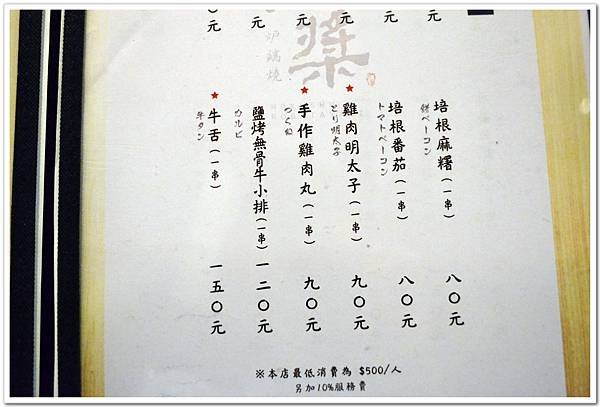 元
元
元
元
元
元
爐端燒
培根麻糬(一串)
餅ベーコン
八〇元
培根番茄(一串)
トマトベーコン
八〇元
★雞肉明太子(一串)
とり明太子
九〇元
★手作雞肉丸(一串)
つくね
九〇元
鹽烤無骨牛小排(一串)
カルビ
一二〇元
★牛舌(一串)
牛タン
一五〇元
※本店最低消費為 $500/人
另加10%服務費